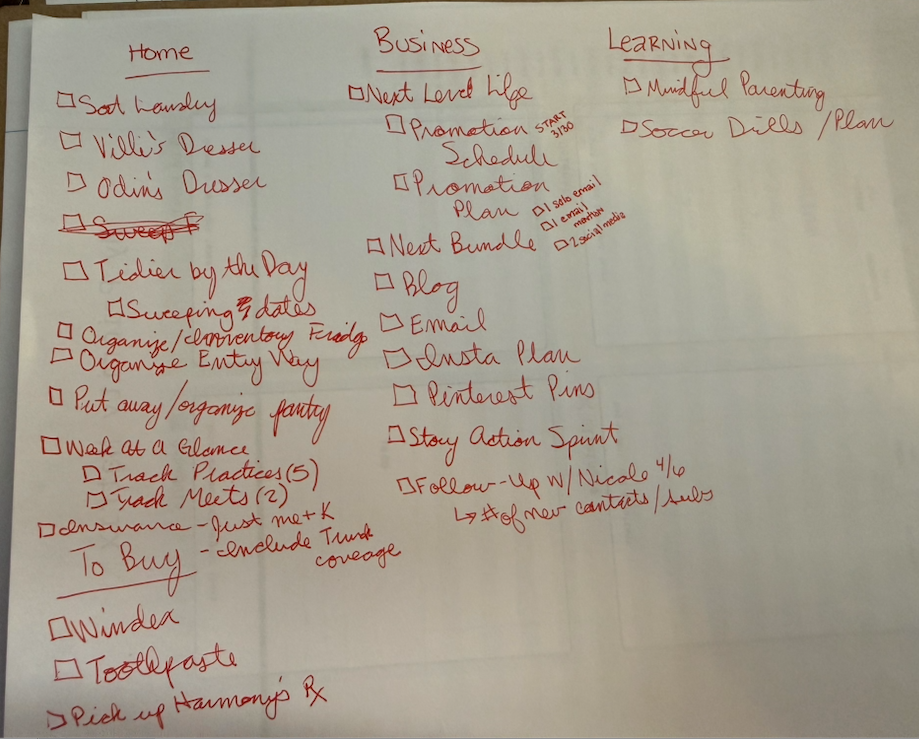 Home
☐ Sort Laundry
☐ Ville's Dresser
☐ Odin's Dresser
☐ Sweep F
☐ Tidier by the Day
☐ Sweeping dates
☐ Organize/Inventory Fridge
☐ Organize Entry Way
☐ Put away/organize pantry
☐ Week At A Glance
☐ Track Practices (5)
☐ Track Meets (2)
☐ Insurance - Just me + K
- Include Truck
coveage
To Buy
☐ Windex
☐ Toothpaste
☐ Pick up Harmony's Rx
Business
☐ Next Level Life
☐ Promotion START 3/30
Schedule
☐ Promotion
Plan
☐ 1 solo email
☐ 1 email mention
☐ 2 social media
☐ Next Bundle
☐ Blog
☐ Email
☐ Insta Plan
☐ Pinterest Pins
☐ Story Action Sprint
☐ Follow-Up W/ Nicole 4/6
↳ # of new contacts/subs
Learning
☐ Mindful Parenting
☐ Soccer Drills/Plan